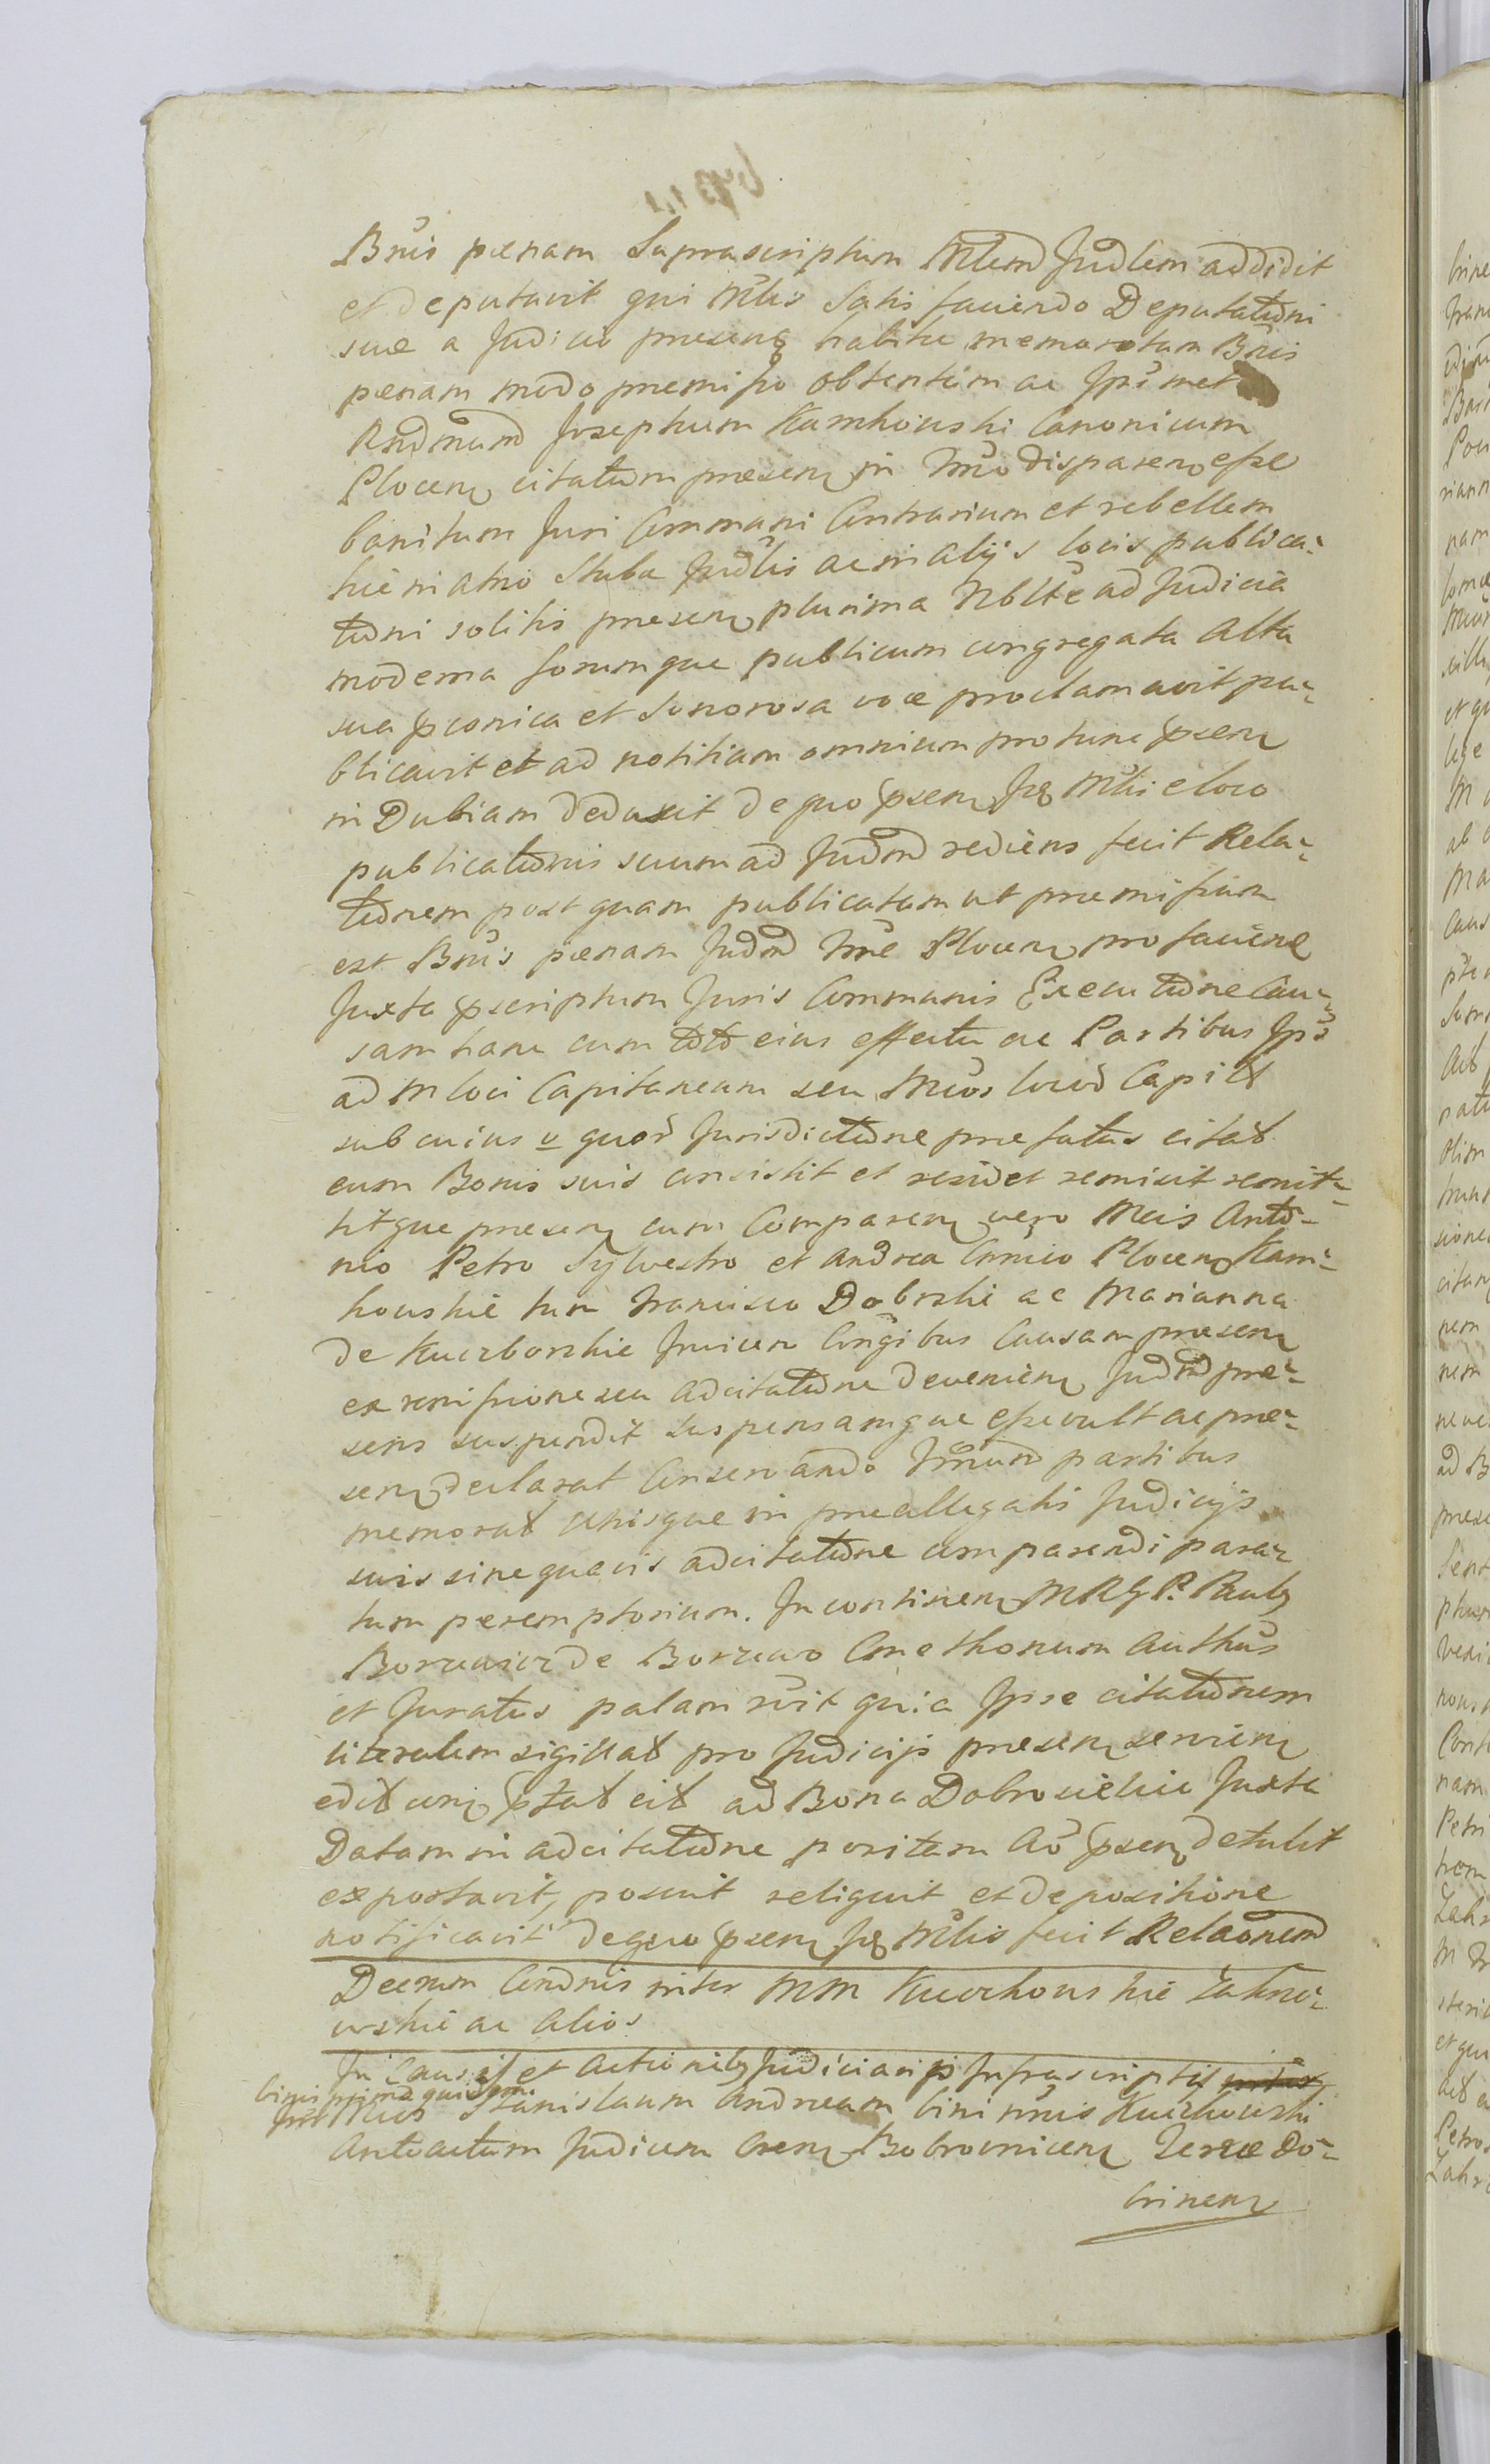 Bnis pœnam Suprascriptum Mlem Judlem addidit
et deputavit qui Mtlis satis faciendo Deputatōni
suæ a Judicio præsenti habitæ memoratam Bnis
pœnam modo præmisso obtentam ac Ipsmet
Rndmum Josephum Karnkowski Canonicum
Plocen citatum præsen in Tmio disparen esse
banitum Juri Communi Contrarium et rebellem
hic in atrio Stubæ Judlis ac in alijs locis publica-
tōni solitis præsen plurima Nbltē ad Judicia
moderna forumque publicum congregata Alta
sua pconica et sonorosa voce proclamavit pu-
blicavit et ad notitiam omnium pro tunc psen
in Dubiam deduxit de quo psen Idē Mtlis e loco
publicatōnis suum ad Judm rediens fecit Rela-
tōnem post quam publicatam ut præmissum
est Bnis pœnam Judm Tre Plocen pro faciene
Juxta pscriptum Juris Communis Executōne Cau-
sam hanc cum toto eius effectu ac Partibus Ips
ad M loci Capitaneum seu Mcos locor Capit
sub cuius v quor Jurisdictōne præfatus citat
cum Bonis suis consistit et residet remisit remit-
titque præsen cum Comparen vero Mcis Anto-
nio Petro Sylvestro et Andrea Cnnico Plocen Karn-
kowskie tum Francisco Dobrski ac Marianna
de Kucborskie Invicem Conjgibus Causam præsen
ex remissione seu adcitatōne devenien Judm præ-
sens suspendit suspensamque esse vult ac præ-
sen declarat Conservando Tmum partibus
memorat utrisque in præallegatis Judicijs
suis sine quavis adcitatōne comparendi para-
tum peremptorium. In continen MRG P. Paulg
Borzewicz de Borzewo Cmethonum Authūs
et Juratus palam rūit quia Ipse citatōnem
literalem sigillat pro Judicijs præsen servien
edit con pfat cit ad Bona Dobrosielice Juxta
Datam in adcitatōne positam Ao psen detulit
exportavit, posuit reliquit et depositione
notificavit de quo psen Idē Mtlis fecit Relaōnem
Decrum Condnis inter MM Kuczkowskie Zakrze-
wskie ac Alios
In Causis et Actionibg Judiciarijs Infrascriptis inter
binis prima quidem
Inter Mcos Stanislaum Andream bini nnis Kuczkowski
Anteactum Judicem Cren Bobrovnicen Terræ Do-
brinen